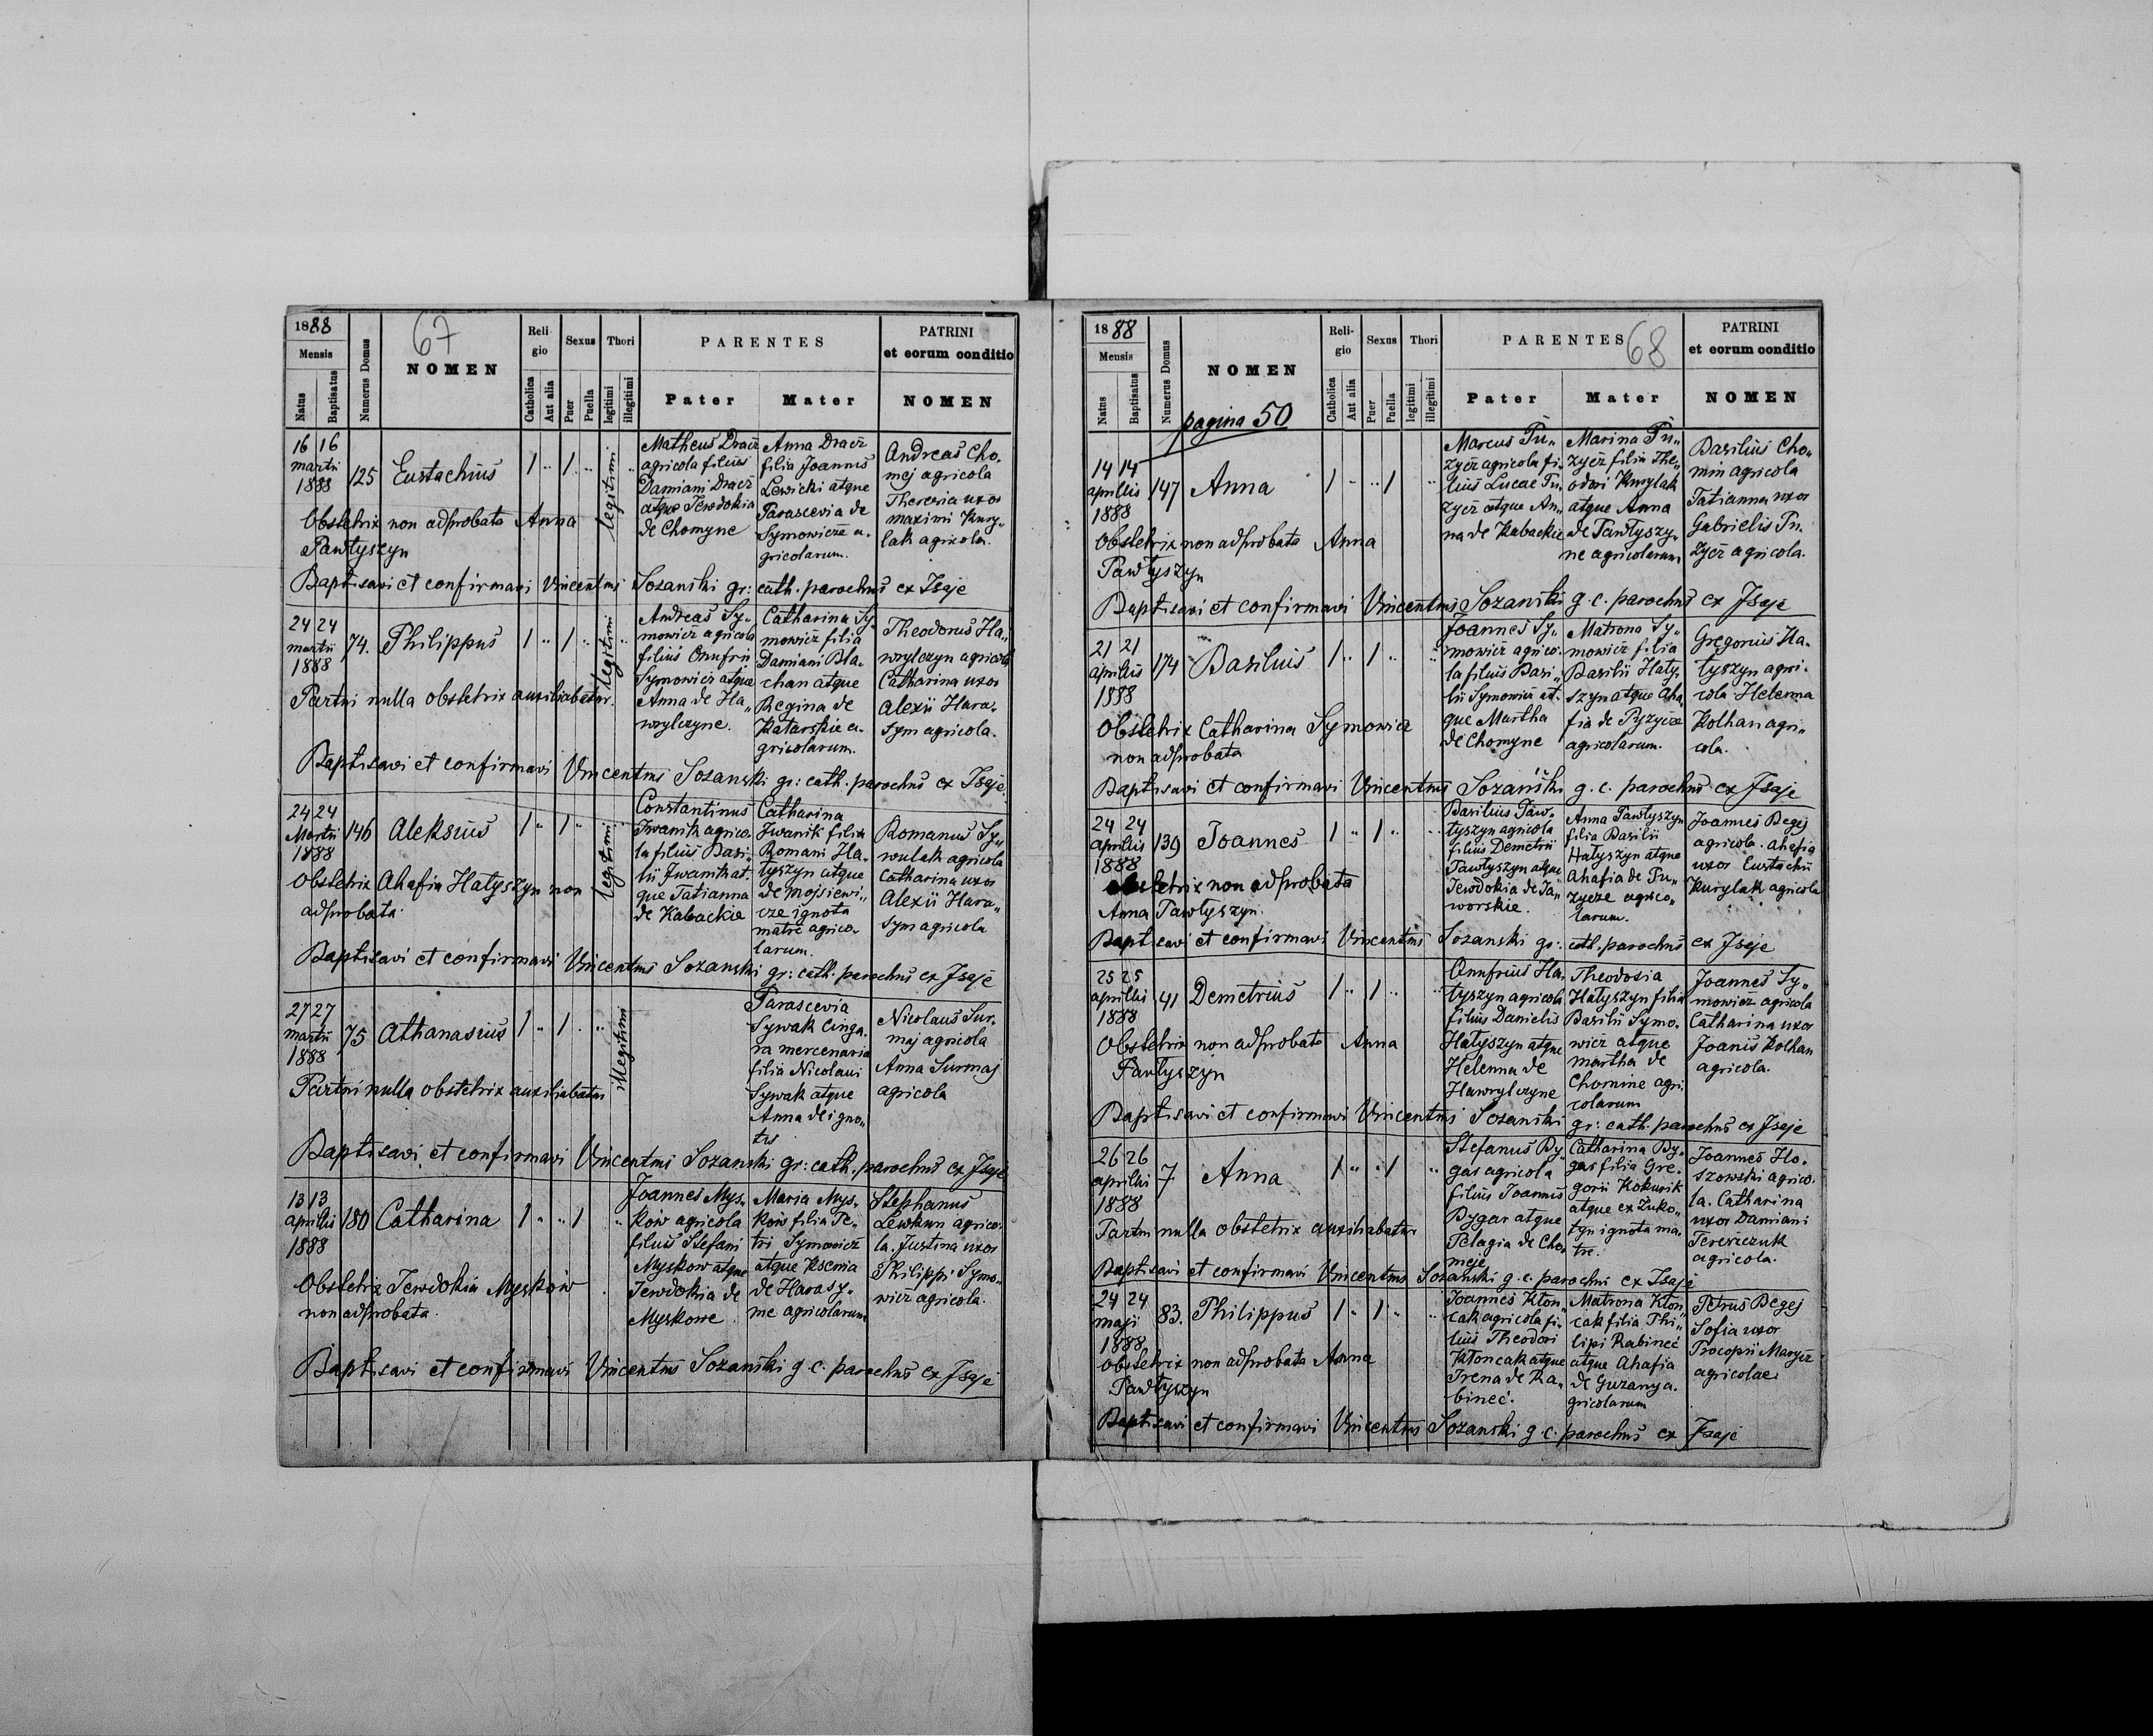 1888
67
Mensis
Natus
Baptisatus
Numerus Domus
NOMEN
Reli-
gio
Catholica
Aut alia
Sexus
Puer
Puella
Thori
legitimi
illegitimi
PARENTES
Pater
Mater
PATRINI
et eorum conditio
NOMEN
16 16
martii
1888
125
Eustachius
1 " 1 "
legitimi
Matheus Dracz
agricola filius
Damiani Dracz
atque Jewdokia
de Chomyne
Anna Dracz
filia Joannis
Lewicki atque
Parascevia de
Symowicze a„
gricolarum.
Andreas Cho„
mej agricola
Theresia uxor
maximi Kury„
lak agricola.
Obstetrix non adprobata Anna
Pawłyszyn
Baptisavi et confirmavi Vincentius Sozanski gr: cath. parochus ex Isaje
24 24
martii
1888
74.
Philippus
1 " 1 "
legitimi
Andreas Sy„
mowicz agricola
filius Onufrii
Symowicz atque
Anna de Ha„
wrylczyne.
Catharina Sy„
mowicz filia
Damiani Bla„
chan atque
Regina de
Katarskie a„
gricolarum.
Theodorus Ha„
wrylczyn agricola
Catharina uxor
Alexii Hara„
sym agricola.
Partui nulla obstetrix auxiliabatur.
Baptisavi et confirmavi Vincentius Sozanski gr: cath. parochus ex Isaje.
24 24
Martii
1888
146
Aleksius
1 " 1 "
legitimi
Constantinus
Iwanik agrico„
la filius Basi„
lii Iwanik at„
que Tatianna
de Kabackie
Catharina
Iwanik filia
Romani Ha„
tyszyn atque
de Mojsiewi„
cze ignota
matre agrico„
larum.
Romanus Sy„
wulak agricola
Catharina uxor
Alexii Hara„
sym agricola
Obstetrix Ahafia Hatyszyn non
adprobata.
Baptisavi et confirmavi Vincentius Sozanski gr: cath. parochus ex Isaje
27 27
martii
1888
75
Athanasius
1 " 1 "
illegitimi
Parascevia
Sywak Cinga„
ra mercenaria
filia Nicolaui
Sywak atque
Anna de igno„
tis
Nicolaus Sur„
maj agricola
Anna Surmaj
agricola
Partui nulla obstetrix auxiliabatur
Baptisavi et confirmavi Vincentius Sozanski gr: cath. parochus ex Isaje
13 13
aprilis
1888
180
Catharina
1 " " 1
Joannes Mys„
ków agricola
filius Stefani
Myskow atque
Jewdokia de
Myskowe
Maria Mys„
ków filia Pe„
tri Symowicz
atque Ksenia
de Harasy„
me agricolarum
Stephanus
Lewkun agrico„
la. Justina uxor
Philippi Symo„
wicz agricola.
Obstetrix Jewdokia Mysków
non adprobata.
Baptisavi et confirmavi Vincentius Sozanski g. c. parochus ex Isaje
1888
Mensis
Natus
Baptisatus
Numerus Domus
NOMEN
pagina 50
Reli-
gio
Catholica
Aut alia
Sexus
Puer
Puella
Thori
legitimi
illegitimi
PARENTES
68
Pater
Mater
PATRINI
et eorum conditio
NOMEN
14 14
aprilis
1888
147
Anna
1 " " 1
Marcus Pu„
zycz agricola fi„
lius Lucae Pu„
zycz atque An„
na de Kabackie
Marina Pu„
zycz filia The„
odori Kurylak
atque Anna
de Pawłyszy„
ne agricolarum
Basilius Cho„
min agricola
Tatianna uxor
Gabrielis Pu„
zycz agricola.
Obstetrix non adprobata Anna
Pawłyszyn
Baptisavi et confirmavi Vincentius Sozański g. c. parochus ex Isaje
21 21
aprilis
1888
174
Basilius
1 " 1 "
Joannes Sy„
mowicz agrico„
la filius Basi„
lii Symowicz at„
que Martha
de Chomyne
Matrona Sy„
mowicz filia
Basilii Haty„
szyn atque Aha„
fia de Pyzycze
agricolarum.
Gregorius Ha„
tyszyn agri„
cola Helenna
Kolhan agri„
cola.
Obstetrix Catharina Symowicz
non adprobata
Baptisavi et confirmavi Vincentius Sozański g. c. parochus ex Isaje
24 24
aprilis
1888
139
Joannes
1 " 1 "
Basilius Paw„
łyszyn agricola
filius Demetrii
Pawłyszyn atque
Jewdokia de Ja„
worskie.
Anna Pawłyszyn
filia Basilii
Hatyszyn atque
Ahafia de Pu„
zycze agrico„
larum.
Joannes Begej
agricola. Ahafia
uxor Eustachii
Kurylak agricola
obstetrix non adprobata
Anna Pawłyszyn.
Baptisavi et confirmavi Vincentius Sozanski gr: cath. parochus ex Isaje
25 25
aprilis
1888
41
Demetrius
1 " 1 "
Onufrius Ha„
tyszyn agricola
filius Danielis
Hatyszyn atque
Helenna de
Hawrylczyne
Theodosia
Hatyszyn filia
Basilii Symo„
wicz atque
martha de
Chomine agri„
colarum
Joannes Sy„
mowicz agricola
Catharina uxor
Joanis Kolhan
agricola.
Obstetrix non adprobata Anna
Pawłyszyn
Baptisavi et confirmavi Vincentius Sozanski gr: cath. parochus ex Isaje
26 26
aprilis
1888
7
Anna
1 " " 1
Stefanus By„
gas agricola
filius Joannis
Bygar atque
Pelagia de Cho„
meje
Catharina By„
gas filia Gre„
gorii Kokurik
atque ex Zuko„
tyn ignota ma„
tre.
Joannes Ho„
szowski agrico„
la. Catharina
uxor Damiani
Tereszczuk
agricola.
Partui nulla obstetrix auxiliabatur
Baptisavi et confirmavi Vincentius Sozanski g. c. parochus ex Isaje
24 24
maji
1888
83.
Philippus
1 " 1 "
Joannes Kłon„
cak agricola fi„
lius Theodori
Kłoncak atque
Irena de Ra„
bineć.
Matrona Kłon„
cak filia Phi„
lipi Rabineć
atque Ahafia
de Guzany a„
gricolarum
Petrus Begej
Sofia uxor
Procopii Marycz
agricolae
Obstetrix non adprobata Anna
Pawłyszyn
Baptisavi et confirmavi Vincentius Sozanski g. c. parochus ex Isaje